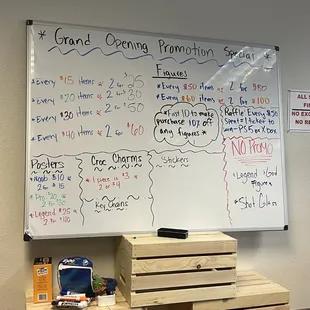 * Grand Opening Promotion Special *
* Every $15 items is 2 for $25
* Every $20 items is 2 for $30
* Every $30 items is 2 for $50
* Every $40 items is 2 for $60
Figures
* Every $50 items is 2 for $80
* Every $60 items is 2 for $100
* First 10 to make
purchase 10% off
any figures *
Raffle: Every $50
Spent: 1 Ticket to
win - PS5 or Xbox
NO PROMO
* Legend / God
Figures
* Shot Glass
Posters
* Noob $10
2 for $15
* Pro $20
* Legend $25
Croc Charms
* 1 Piece is $3
2 for $4
Key Chains
* Stickers
ALL S
FI
NO EX